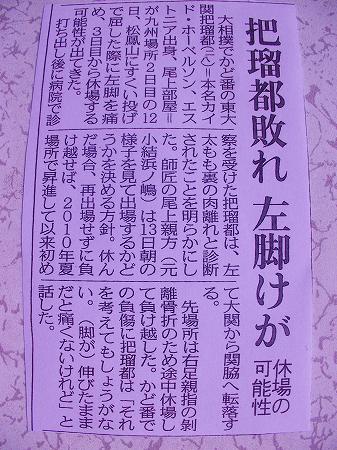 把瑠都敗れ 左脚けが
休場の
可能性
大相撲でかど番の東大
関把瑠都()=本名カイ
ド・ホーベルソン、エス
トニア出身、尾上部屋=
が九州場所2日目の12
日、松鳳山にすくい投げ
で屈した際に左脚を痛
め、3日目から休場する
可能性が出てきた。
打ち出し後に病院で診
察を受けた把瑠都は、左
太もも裏の肉離れと診断
されたことを明らかにし
た。師匠の尾上親方(元
小結浜ノ嶋)は13日朝の
様子を見て出場するかど
うかを決める方針。休ん
だ場合、再出場せずに負
け越せば、2010年夏
場所で昇進して以来初め
て大関から関脇へ転落す
る。
先場所は右足親指の剝
離骨折のため途中休場し
て負け越した。かど番で
の負傷に把瑠都は「それ
を考えてもしょうがな
い。(脚が)伸びたまま
だと痛くないけれど」と
話した。